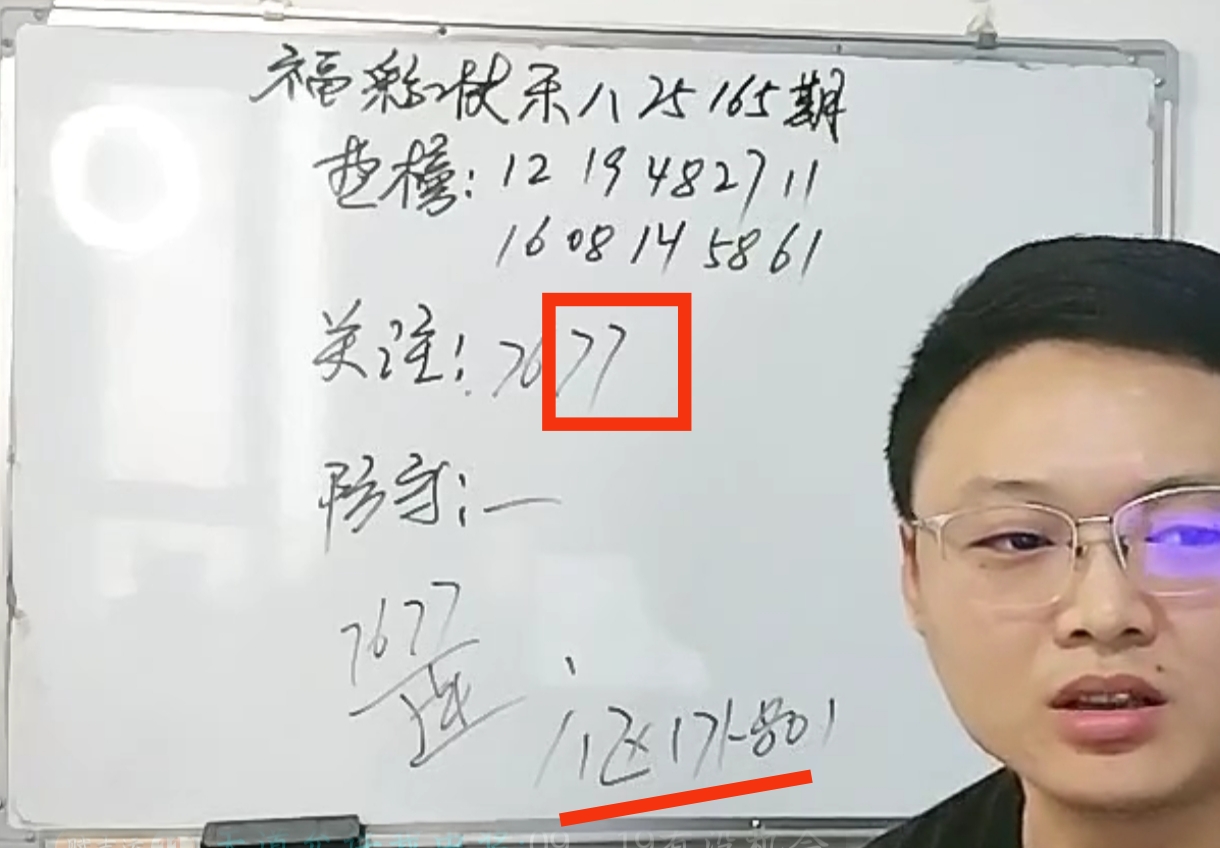 福彩快乐八25165期
垫榜:12 19 48 27 11
16 08 14 58 61
关注:76 77
防守:一
76 77
八区(71-80)